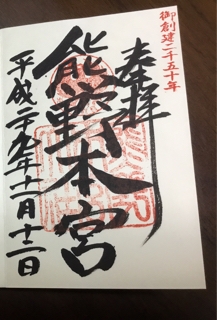 御創建二千五十年
奉拝
熊野本宮
平成二十九年十一月十二日